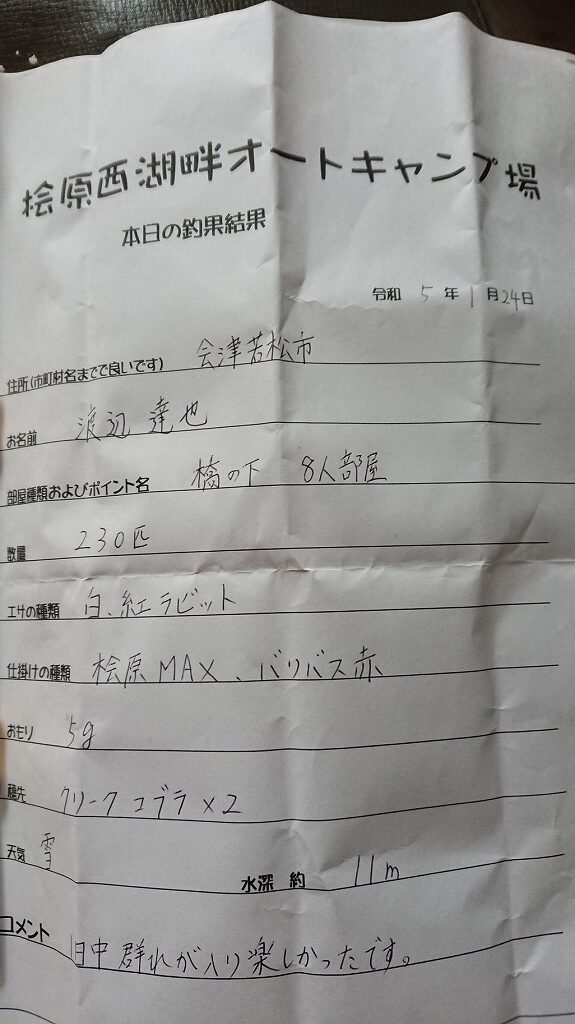 桧原西湖畔オートキャンプ場
本日の釣果結果
令和 5 年 1 月 24 日
住所(市町村名までで良いです) 会津若松市
お名前 渡辺 達也
部屋種類およびポイント名 橋の下 8人部屋
数量 230匹
エサの種類 白、紅ラビット
仕掛けの種類 桧原MAX、バリバス赤
おもり 5g
穂先 クリーク コブラ×2
天気 雪 水深 約 11m
コメント 日中 群れが入り楽しかったです。